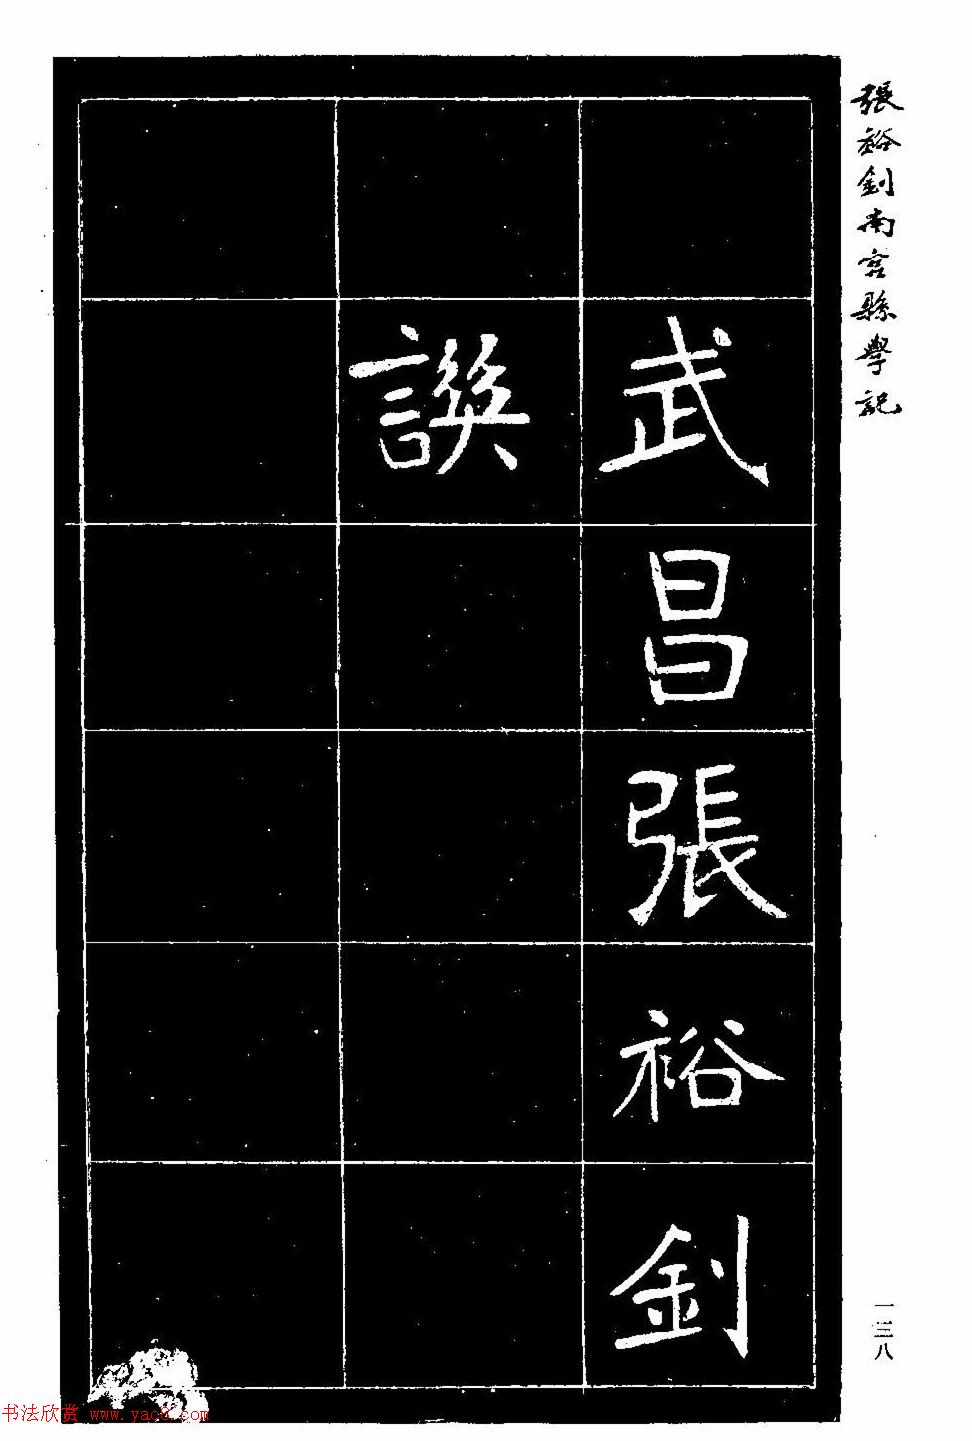 張裕釗南宮縣學記
武昌張裕釗
譔
一三八
书法欣赏 www.yac8.com